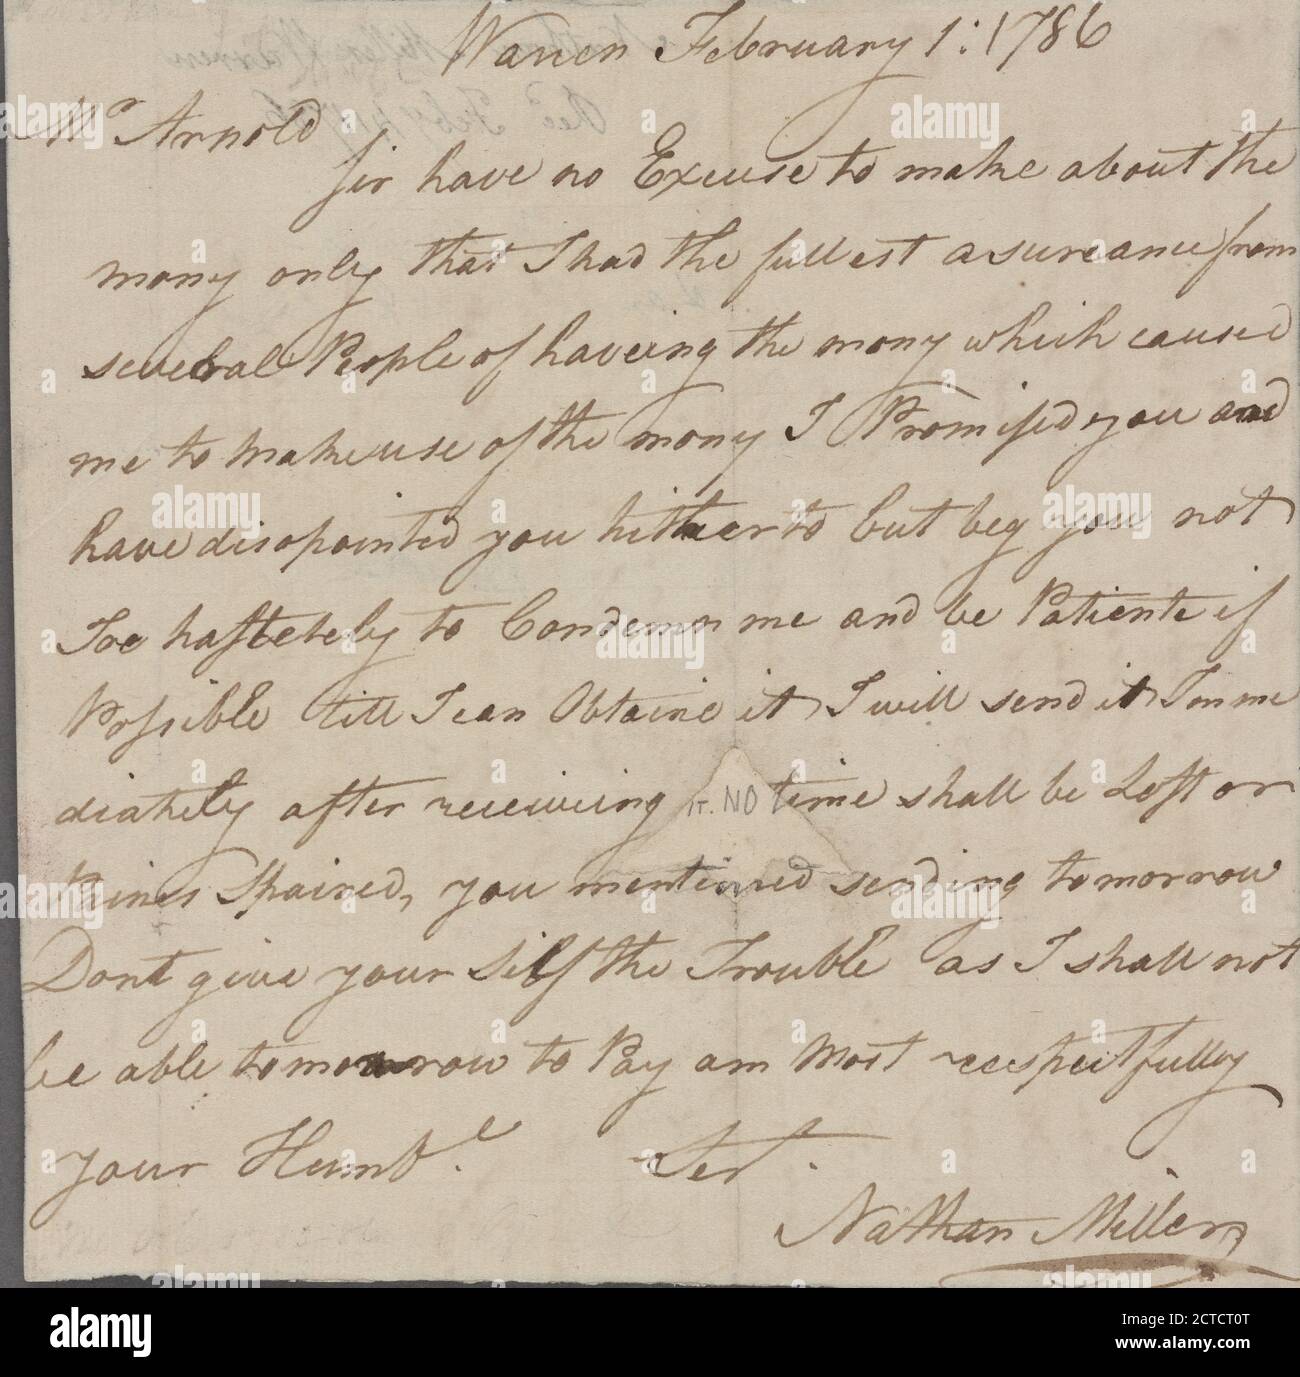 Warren February 1: 1786
Mr Arnold
Sir have no Excuse to make about the
mony only that I had the fullest asureance from
several People of haveing the mony which caused
me to make use of the mony I Promised you and
have disopointed you hitherto but beg you not
Toe hastetely to Condemn me and be Patiente if
Possible till I can Obtaine it I will send it Imme
diately after receiveing IT. NO time shall be Loft or
Paines Spaired, you mentioned sending tomorrow
Dont give your Self the Trouble as I shall not
be able tomorrow to Pay am Most respectfully
your Humbe. Sert.
Nathan Miller
alamy
Image ID: 2CTCT0T
www.alamy.com